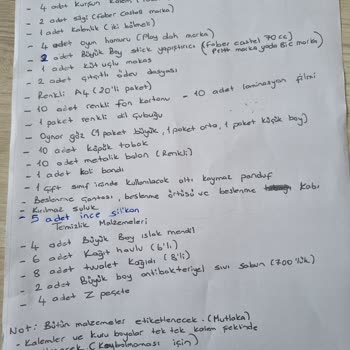 - 4 adet Kurşun Kalem
- 2 adet silgi (Faber castel marka)
- 1 adet Kalemlik (iki bölmeli)
- 4 adet oyun hamuru (Play doh marka)
- 2 adet Büyük Boy stick yapıştırıcı (Faber castel 70cc Pritt marka yada Bic marka)
- 1 adet küt uçlu makas
- 2 adet çıtçıtlı ödev dosyası
- Renkli A4 (20'li paket)
- 10 adet renkli fon kartonu - 10 adet laminasyon filmi
- 1 paket renkli dil çubuğu
- Oynar göz (1 paket büyük, 1 paket orta, 1 paket küçük boy)
- 10 adet köpük tabak
- 10 adet metalik balon (Renkli)
- 1 adet koli bandı
- 1 çift sınıf içinde kullanılacak altı kaymaz panduf
- Beslenme çantası, beslenme örtüsü ve beslenme kabı
- Kırılmaz suluk
- 5 adet ince silikon
Temizlik Malzemeleri
- 4 adet Büyük Boy ıslak mendil
- 6 adet Kağıt havlu (6'lı)
- 8 adet tuvalet kağıdı (8'li)
- 2 adet Büyük boy antibakteriyel sıvı sabun (700'lük)
- 4 adet Z peçete
Not: Bütün malzemeler etiketlenecek. (Mutlaka)
- Kalemler ve kuru boyalar tek tek kalem şeklinde
(Kaybolmaması için)